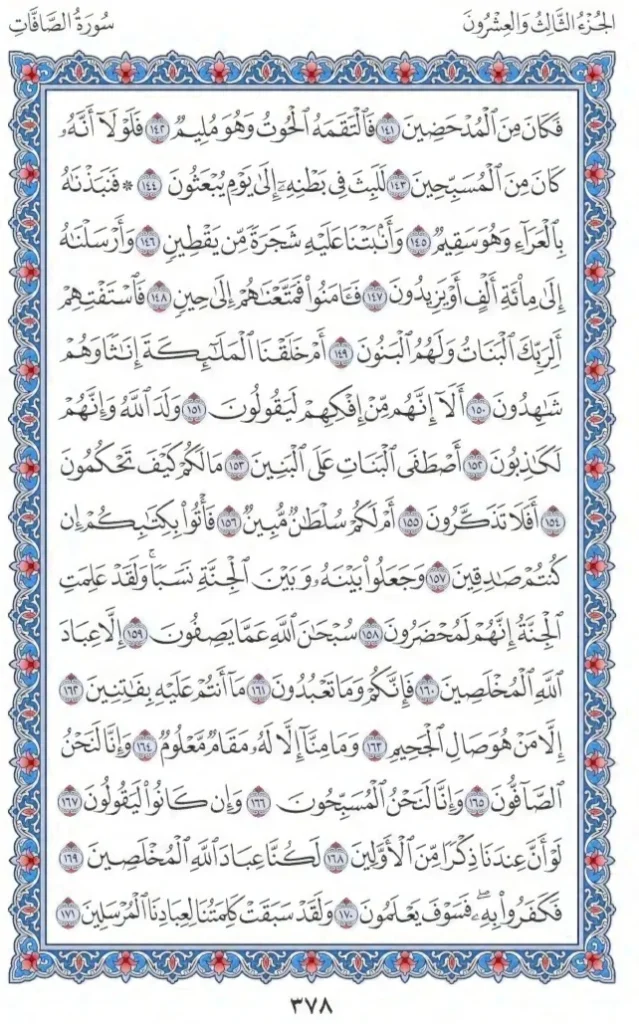 الجُزْءُ الثَّالِثُ وَالعِشْرُونَ
سُورَةُ الصَّافَّاتِ
فَكَانَ مِنَ ٱلْمُدْحَضِينَ ١٤١ فَٱلْتَقَمَهُ ٱلْحُوتُ وَهُوَ مُلِيمٌ ١٤٢ فَلَوْلَآ أَنَّهُۥ
كَانَ مِنَ ٱلْمُسَبِّحِينَ ١٤٣ لَلَبِثَ فِى بَطْنِهِۦٓ إِلَىٰ يَوْمِ يُبْعَثُونَ ١٤٤ * فَنَبَذْنَٰهُ
بِٱلْعَرَآءِ وَهُوَ سَقِيمٌ ١٤٥ وَأَنۢبَتْنَا عَلَيْهِ شَجَرَةً مِّن يَقْطِينٍ ١٤٦ وَأَرْسَلْنَٰهُ
إِلَىٰ مِا۟ئَةِ أَلْفٍ أَوْ يَزِيدُونَ ١٤٧ فَـَٔامَنُوا۟ فَمَتَّعْنَٰهُمْ إِلَىٰ حِينٍ ١٤٨ فَٱسْتَفْتِهِمْ
أَلِرَبِّكَ ٱلْبَنَاتُ وَلَهُمُ ٱلْبَنُونَ ١٤٩ أَمْ خَلَقْنَا ٱلْمَلَٰٓئِكَةَ إِنَٰثًا وَهُمْ
شَٰهِدُونَ ١٥٠ أَلَآ إِنَّهُم مِّنْ إِفْكِهِمْ لَيَقُولُونَ ١٥١ وَلَدَ ٱللَّهُ وَإِنَّهُمْ
لَكَٰذِبُونَ ١٥٢ أَصْطَفَى ٱلْبَنَاتِ عَلَى ٱلْبَنِينَ ١٥٣ مَا لَكُمْ كَيْفَ تَحْكُمُونَ
١٥٤ أَفَلَا تَذَكَّرُونَ ١٥٥ أَمْ لَكُمْ سُلْطَٰنٌ مُّبِينٌ ١٥٦ فَأْتُوا۟ بِكِتَٰبِكُمْ إِن
كُنتُمْ صَٰدِقِينَ ١٥٧ وَجَعَلُوا۟ بَيْنَهُۥ وَبَيْنَ ٱلْجِنَّةِ نَسَبًا ۚ وَلَقَدْ عَلِمَتِ
ٱلْجِنَّةُ إِنَّهُمْ لَمُحْضَرُونَ ١٥٨ سُبْحَٰنَ ٱللَّهِ عَمَّا يَصِفُونَ ١٥٩ إِلَّا عِبَادَ
ٱللَّهِ ٱلْمُخْلَصِينَ ١٦٠ فَإِنَّكُمْ وَمَا تَعْبُدُونَ ١٦١ مَآ أَنتُمْ عَلَيْهِ بِفَٰتِنِينَ ١٦٢
إِلَّا مَنْ هُوَ صَالِ ٱلْجَحِيمِ ١٦٣ وَمَا مِنَّآ إِلَّا لَهُۥ مَقَامٌ مَّعْلُومٌ ١٦٤ وَإِنَّا لَنَحْنُ
ٱلصَّآفُّونَ ١٦٥ وَإِنَّا لَنَحْنُ ٱلْمُسَبِّحُونَ ١٦٦ وَإِن كَانُوا۟ لَيَقُولُونَ ١٦٧
لَوْ أَنَّ عِندَنَا ذِكْرًا مِّنَ ٱلْأَوَّلِينَ ١٦٨ لَكُنَّا عِبَادَ ٱللَّهِ ٱلْمُخْلَصِينَ ١٦٩
فَكَفَرُوا۟ بِهِۦ ۖ فَسَوْفَ يَعْلَمُونَ ١٧٠ وَلَقَدْ سَبَقَتْ كَلِمَتُنَا لِعِبَادِنَا ٱلْمُرْسَلِينَ ١٧١
٣٧٨